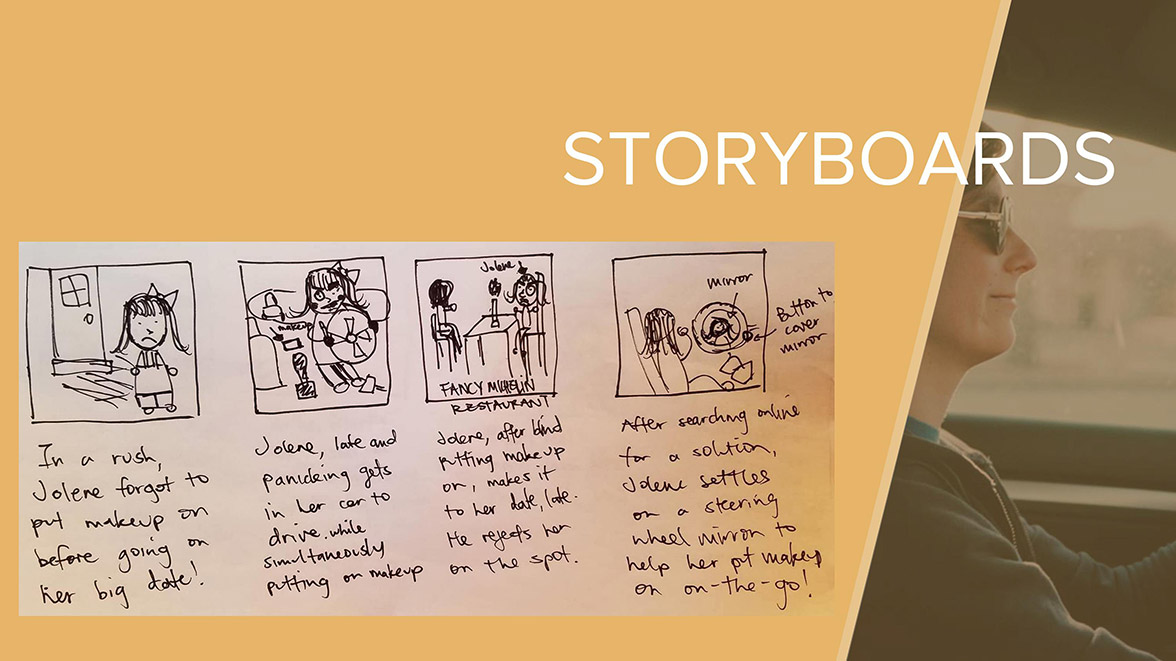 STORYBOARDS
In a rush,
Jolene forgot to
put makeup on
before going on
her big date!
makeup
Jolene, late and
panicking gets
in her car to
drive. while
simultaneously
putting on makeup
Jolene
FANCY MICHELIN
RESTAURANT
Jolene, after blind
putting makeup
on, makes it
to her date, late.
He rejects her
on the spot.
mirror
Button to
cover
mirror
After searching online
for a solution,
Jolene settles
on a steering
wheel mirror to
help her pt makeup
on on-the-go!